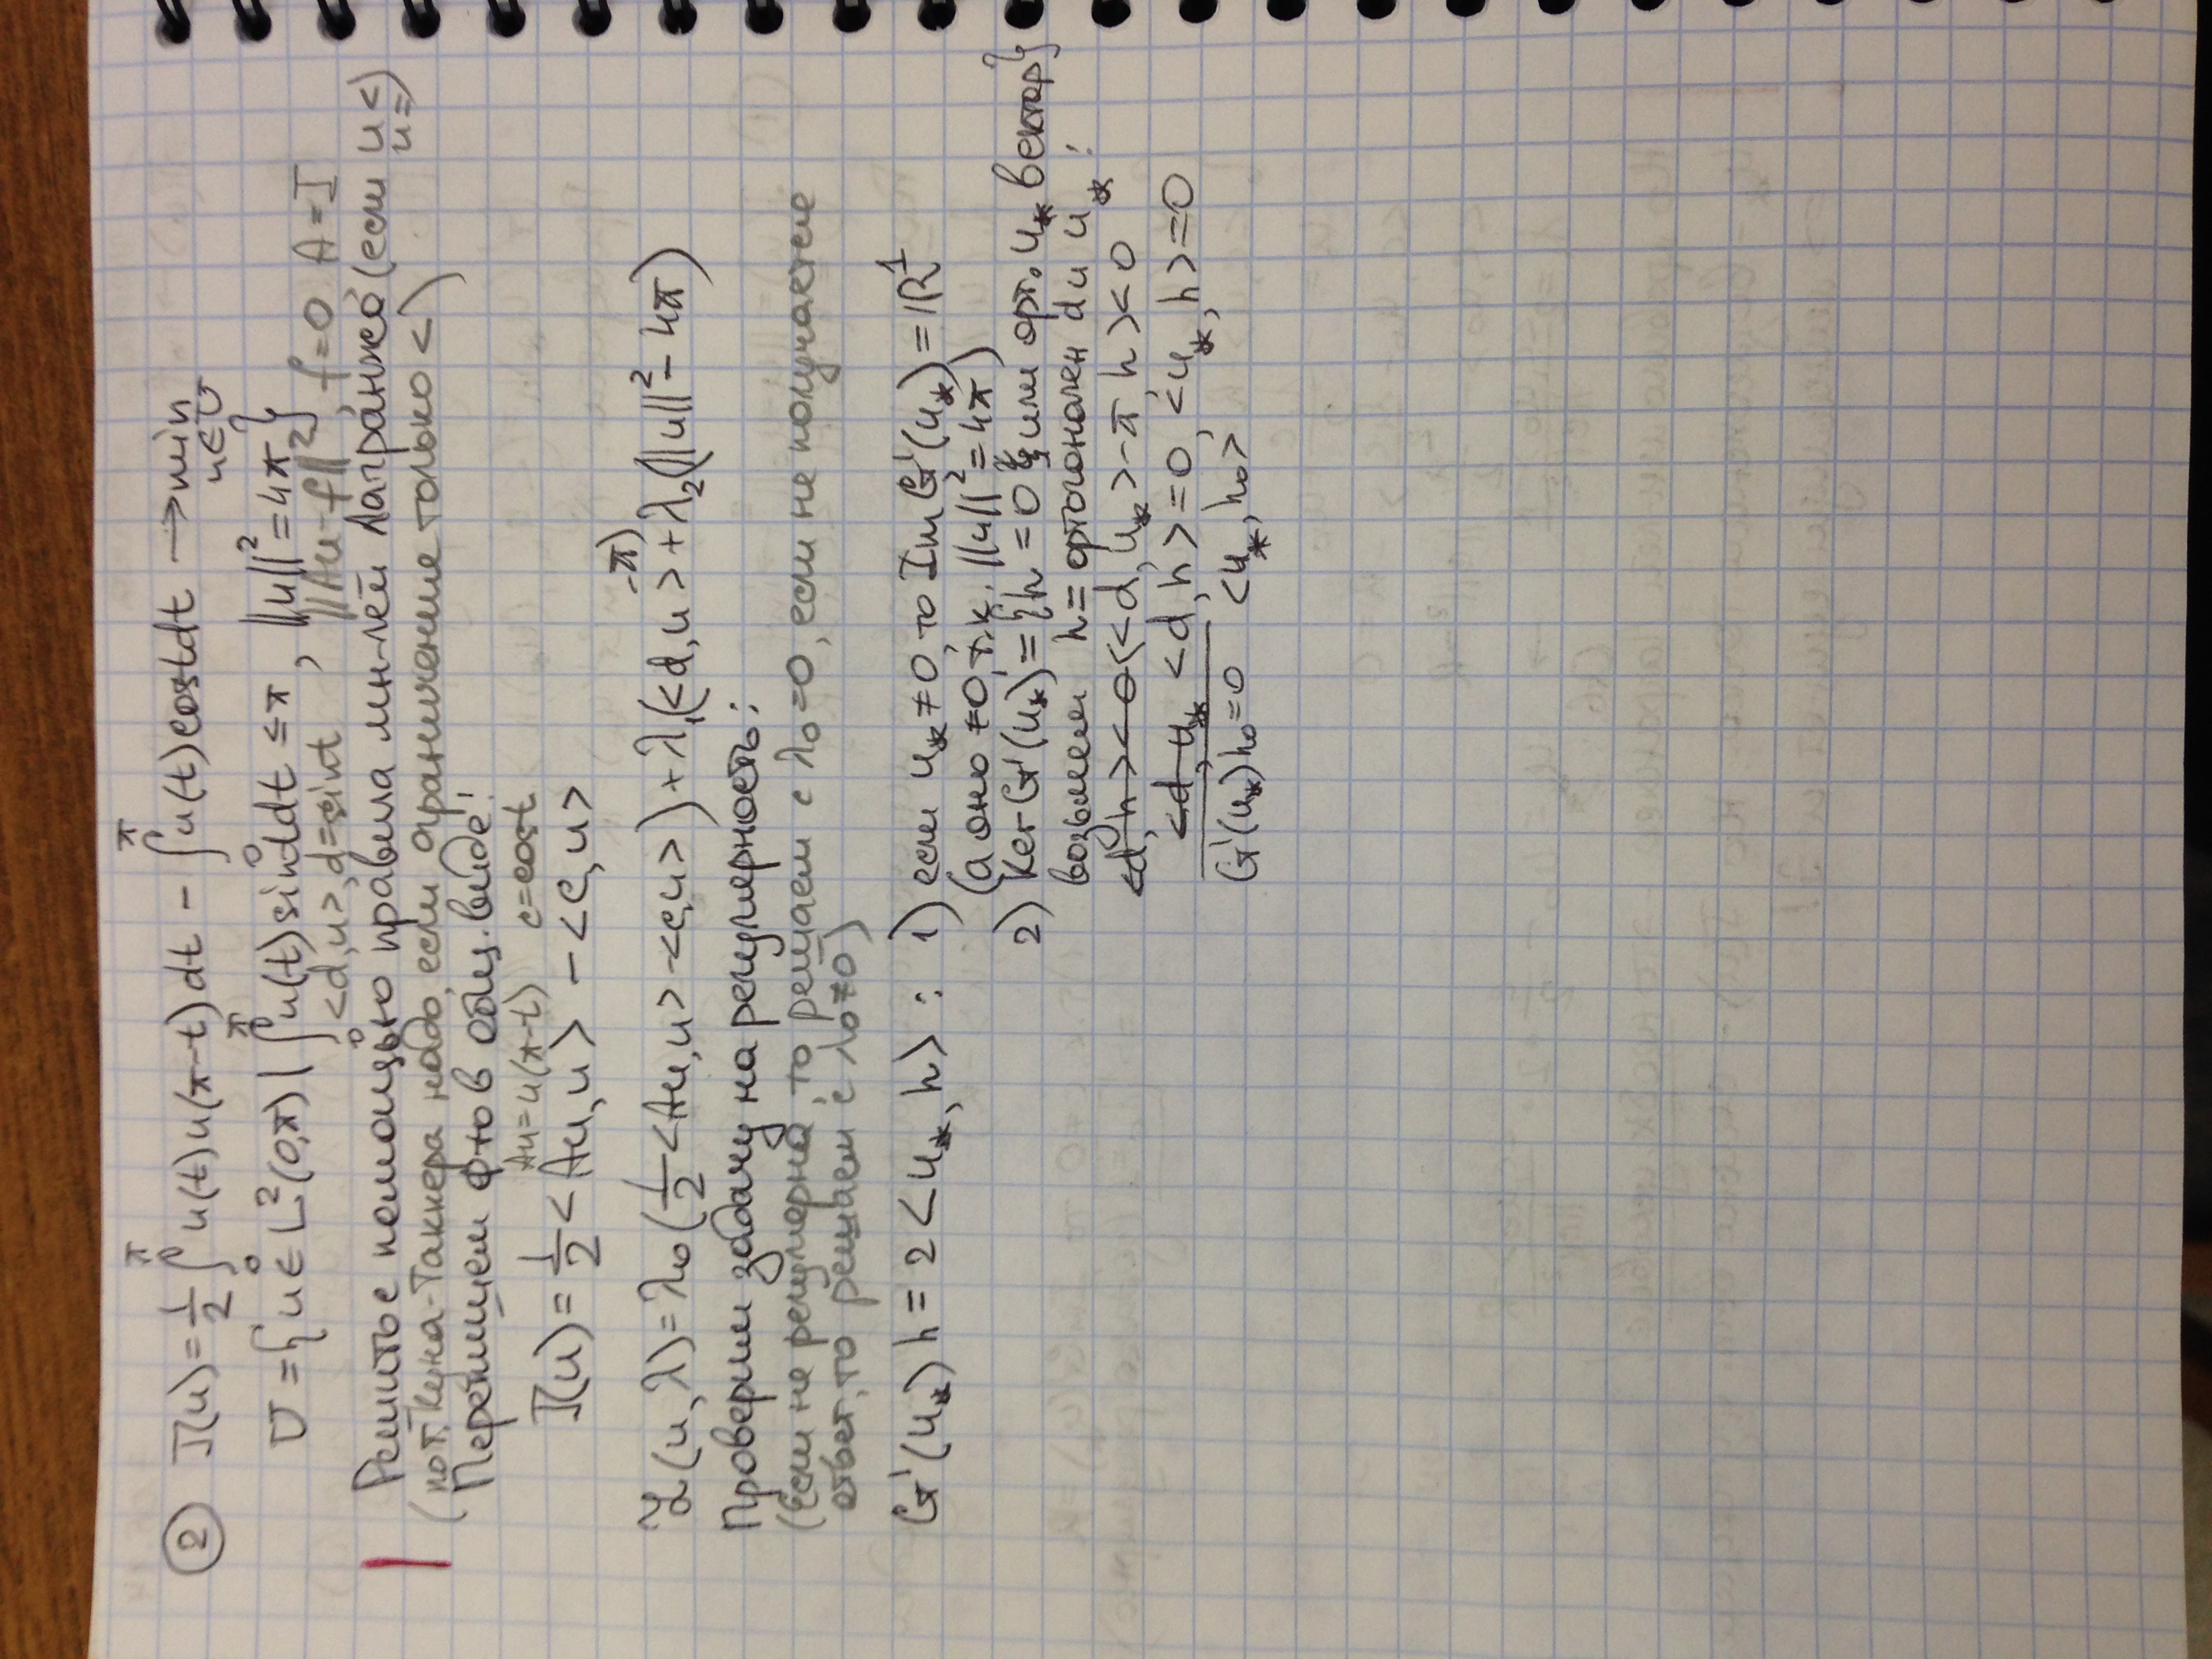 ② J(u) = 1/2 ∫₀^π u(t)u(π-t)dt - ∫₀^π u(t)costdt → min u∈U
U = {u ∈ L²(0,π) | ∫₀^π u(t)sintdt ≤ π, ||u||² = 4π}
<d,u>, d=sint ||Au-f||² f=0 A=I
Решить с помощью правила мн-лей Лагранжа (если u < u =)
(пот. Куна-Таккера надо, если ограничение только <)
Перепишем ф-ю в общ. виде:
Au=u(π-t) c=cost
J(u) = 1/2 <Au, u> - <c, u>
-π)
ℒ(u, λ) = λ₀(1/2 <Au, u> - <c,u>) + λ₁(<d,u> + λ₂(||u||² - 4π)
Проверим задачу на регулярность:
(если не регулярна, то решаем с λ₀=0, если не получается
ответ, то решаем с λ₀≠0)
G'(u*)h = 2<u*, h> : 1) если u*≠0, то Im G'(u*) = ℝ¹
(а оно ≠0, т.к. ||u||² = 4π)
2) Ker G'(u*) = {h = 0 или орт. u* вектор}
возьмем h = ортогонален d и u*:
<d, h> < 0 (<d, u*> - π, h) < 0
<d, u* <d, h> = 0, <u*, h> = 0
G'(u*)h₀=0 <u*, h₀>